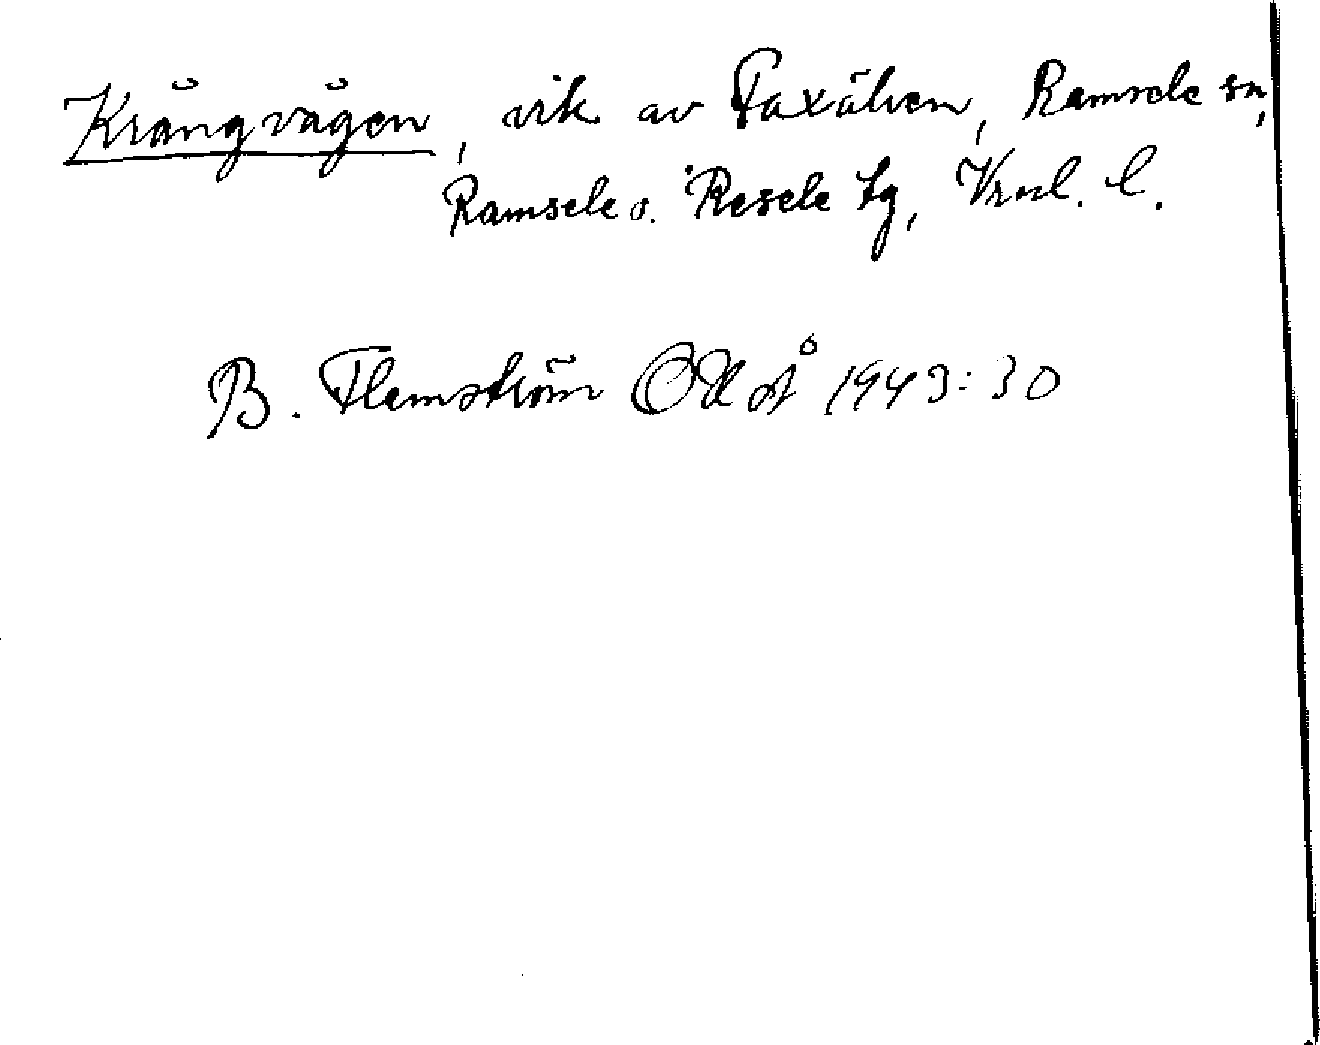 Krångvågen, vik av Faxälven, Ramsele sn,
Ramsele o. Resele tg, Vnl. l.
B. Flemström OUÅ 1943:30